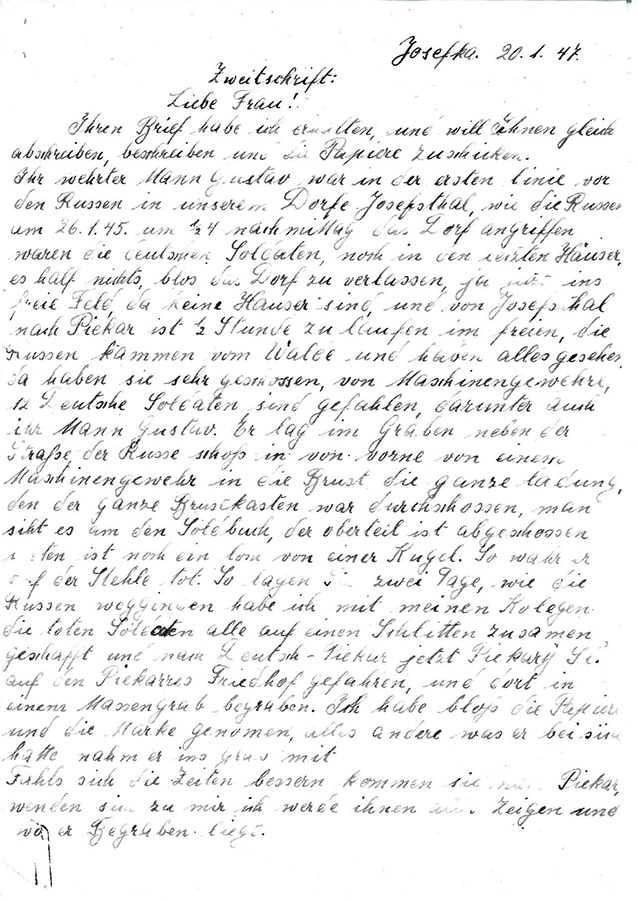 Josefka. 20.1.47.
Zweitschrift:
Liebe Frau!
Ihren Brief habe ich erhalten, und will Ihnen gleich
abschreiben, beschreiben und die Papiere zuschicken.
Ihr wehrter Mann Gustav war in der ersten linie vor
den Russen in unserem Dorfe Josefsthal, wie die Russen
am 26.1.45. um ½4 nachmittag das Dorf angriffen
waren die deutschen Soldaten, noch in den letzten Häuser,
es half nichts, blos das Dorf zu verlassen, ja jetzt ins
freie Feld, da keine Häuser sind, und von Josefsthal
nach Piekar ist ½ Stunde zu laufen im freien, die
Russen kammen vom Walde und haben alles gesehen
da haben sie sehr geschossen, von Maschinengewehre,
12 Deutsche Soldaten sind gefahlen, darunter auch
ihr Mann Gustav. Er lag im Graben neben der
Straße, der Russe schoß in von vorne von einem
Maschinengewehr in die Brust die ganze ladung,
den der ganze Brustkasten war durchschossen, man
siht es am den Soldbuch, der oberteil ist abgeschossen
unten ist noch ein von einer Kugel. So wahr er
auf der Stehle tot. So lagen zwei Tage, wie die
Russen weggingen habe ich mit meinen Kolegen
die toten Soldaten alle auf einen Schlitten zusamen
geschafft und nach Deutsch-Piekar jetzt Piekary Sl.
auf den Piekarres Friedhof gefahren, und dort in
einem Massengrab begraben. Ich habe bloß die Papiere
und die Marke genomen, alles andere was er bei sich
hatte nahm er ins grab mit
Fahls sich die Zeiten bessern kommen sie nach Piekar,
wenden sie zu mir ich werde ihnen Zeigen und
wo er Begraben liegt.